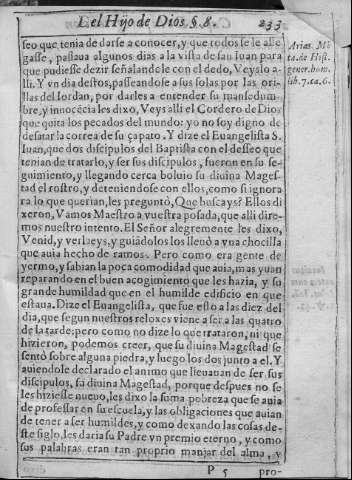 del Hijo de Dios §. 8. 233
seo que tenia de darse a conocer, y que todos se le alle
gasse, passaua algunos dias a la vista de san Iuan para
que pudiesse dezir señalandole con el dedo, Veyslo a-
lli. Y vn dia destos, passeandose a sus solas por las ori-
llas del Iordan, por darles a entender su mansedum-
bre, y innocēcia les dixo, Veys alli el Cordero de Dios
que quita los pecados del mundo: yo no soy digno de
desatar la correa de su çapato. Y dize el Euangelista S.
Iuan, que dos discipulos del Baptista con el desseo que
tenian de tratarlo, y ser sus discipulos, fueron en su se-
guimiento, y llegando cerca boluio su diuina Mages-
tad el rostro, y deteniendose con ellos, como si ignora
ra lo que querian, les preguntó, Que buscays? Ellos di
xeron, Vamos Maestro a vuestra posada, que alli dire-
mos nuestro intento. El Señor alegremente les dixo,
Venid, y verlaeys, y guiādolos los lleuò a vna chocilla
que auia hecho de ramos. Pero como era gente de
yermo, y sabian la poca comodidad que auia, mas yuan
reparando en el buen acogimiento que les hazia, y su
grande humildad que en el humilde edificio en que
estaua. Dize el Euangelista, que fue esto a las diez del
dia, que segun nuestros reloxes viene a ser a las quatro
de la tarde: pero como no dize lo que trataron, ni que
hizieron, podemos creer, que su diuina Magestad se
sentò sobre alguna piedra, y luego los dos junto a el. Y
auiendole declarado el animo que lleuauan de ser sus
discipulos, su diuina Magestad, porque despues no se
les hiziesse nueuo, les dixo la suma pobreza que se auia
de professar en su escuela, y las obligaciones que auian
de tener a ser humildes, y como dexando las cosas de-
ste siglo, les daria su Padre vn premio eterno, y como
sus palabras eran tan proprio manjar del alma, y
P 5 pro-
Arias Mō
ta. de Hist.
gener. hum.
lib. 7. ca. 6.